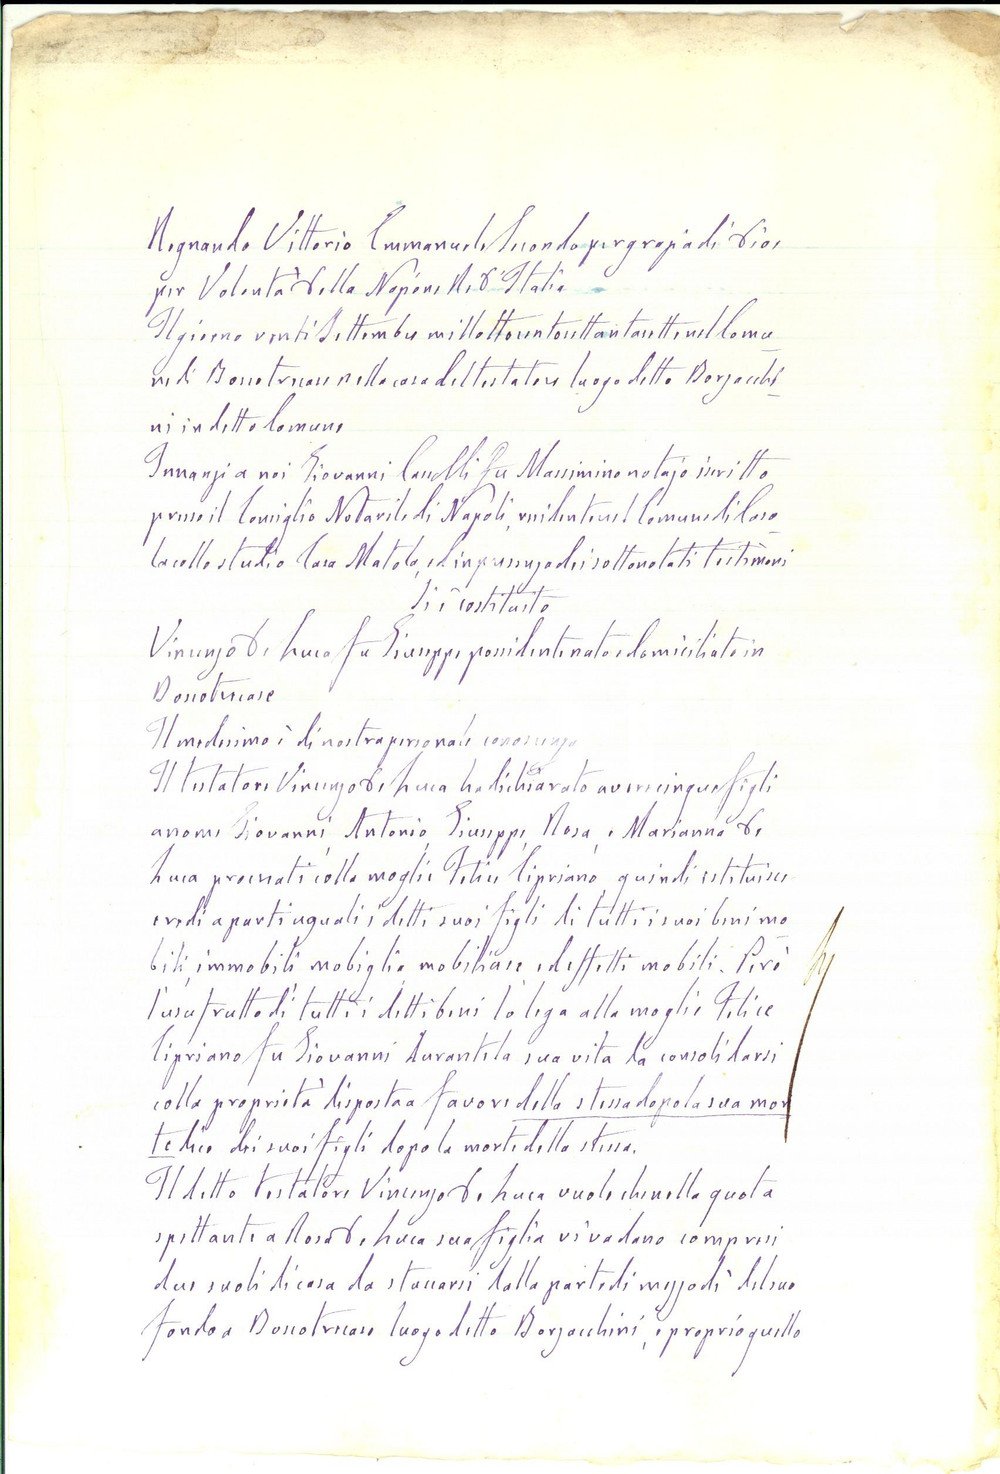 Regnando Vittorio Emmanuele Secondo per grazia di Dio e
per Volontà della Nazione Re d'Italia
Il giorno venti Settembre millottocentosettantasette nel Comu
ne di Boscotrecase nella casa del testatore luogo detto Borzacchi
ni in detto Comune
Innanzi a noi Giovanni fu Massimino notajo iscritto
presso il Consiglio Notarile di Napoli, residente nel Comune di Caso
la collo studio Casa Matola, ed in presenza dei sottonotati testimoni
Si è costituito
Vincenzo De Luca fu Giuseppe possidente nato e domiciliato in
Boscotrecase
Il medesimo è di nostra personale conoscenza
Il testatore Vincenzo De Luca ha dichiarato avere cinque figli
a nome Giovanni, Antonio, Giuseppe, Rosa, e Marianna De
Luca procreati colla moglie Felice Cipriano, quindi istituisce
eredi a parti uguali i detti suoi figli di tutti i suoi beni mo
bili, immobili mobiglia, mobiliare, ed effetti mobili. Però
l'usufrutto di tutti i detti beni lo lega alla moglie Felice
Cipriano fu Giovanni durante la sua vita da consolidarsi
colla proprietà disposta a favore della stessa dopo la sua mor
te dico dei suoi figli dopo la morte della stessa.
Il detto testatore Vincenzo De Luca vuole che nella quota
spettante a Rosa De Luca sua figlia vi vadano compresi
due suoli di casa da staccarsi dalla parte di mezzodì del suo
fondo a Boscotrecase luogo detto Borzacchini, e proprio quello